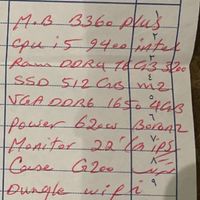 M.B B360 plus ١
cpu i5 9400 intel ٢
Ram DDR4 16 GB 3200 ٣
SSD 512 GB m2 ٤
VGA DDR6 1650 4GB ٥
Power 620w ٦
Monitor 22" ips ٧
Case G200 ٨
Dungle wifi ٩